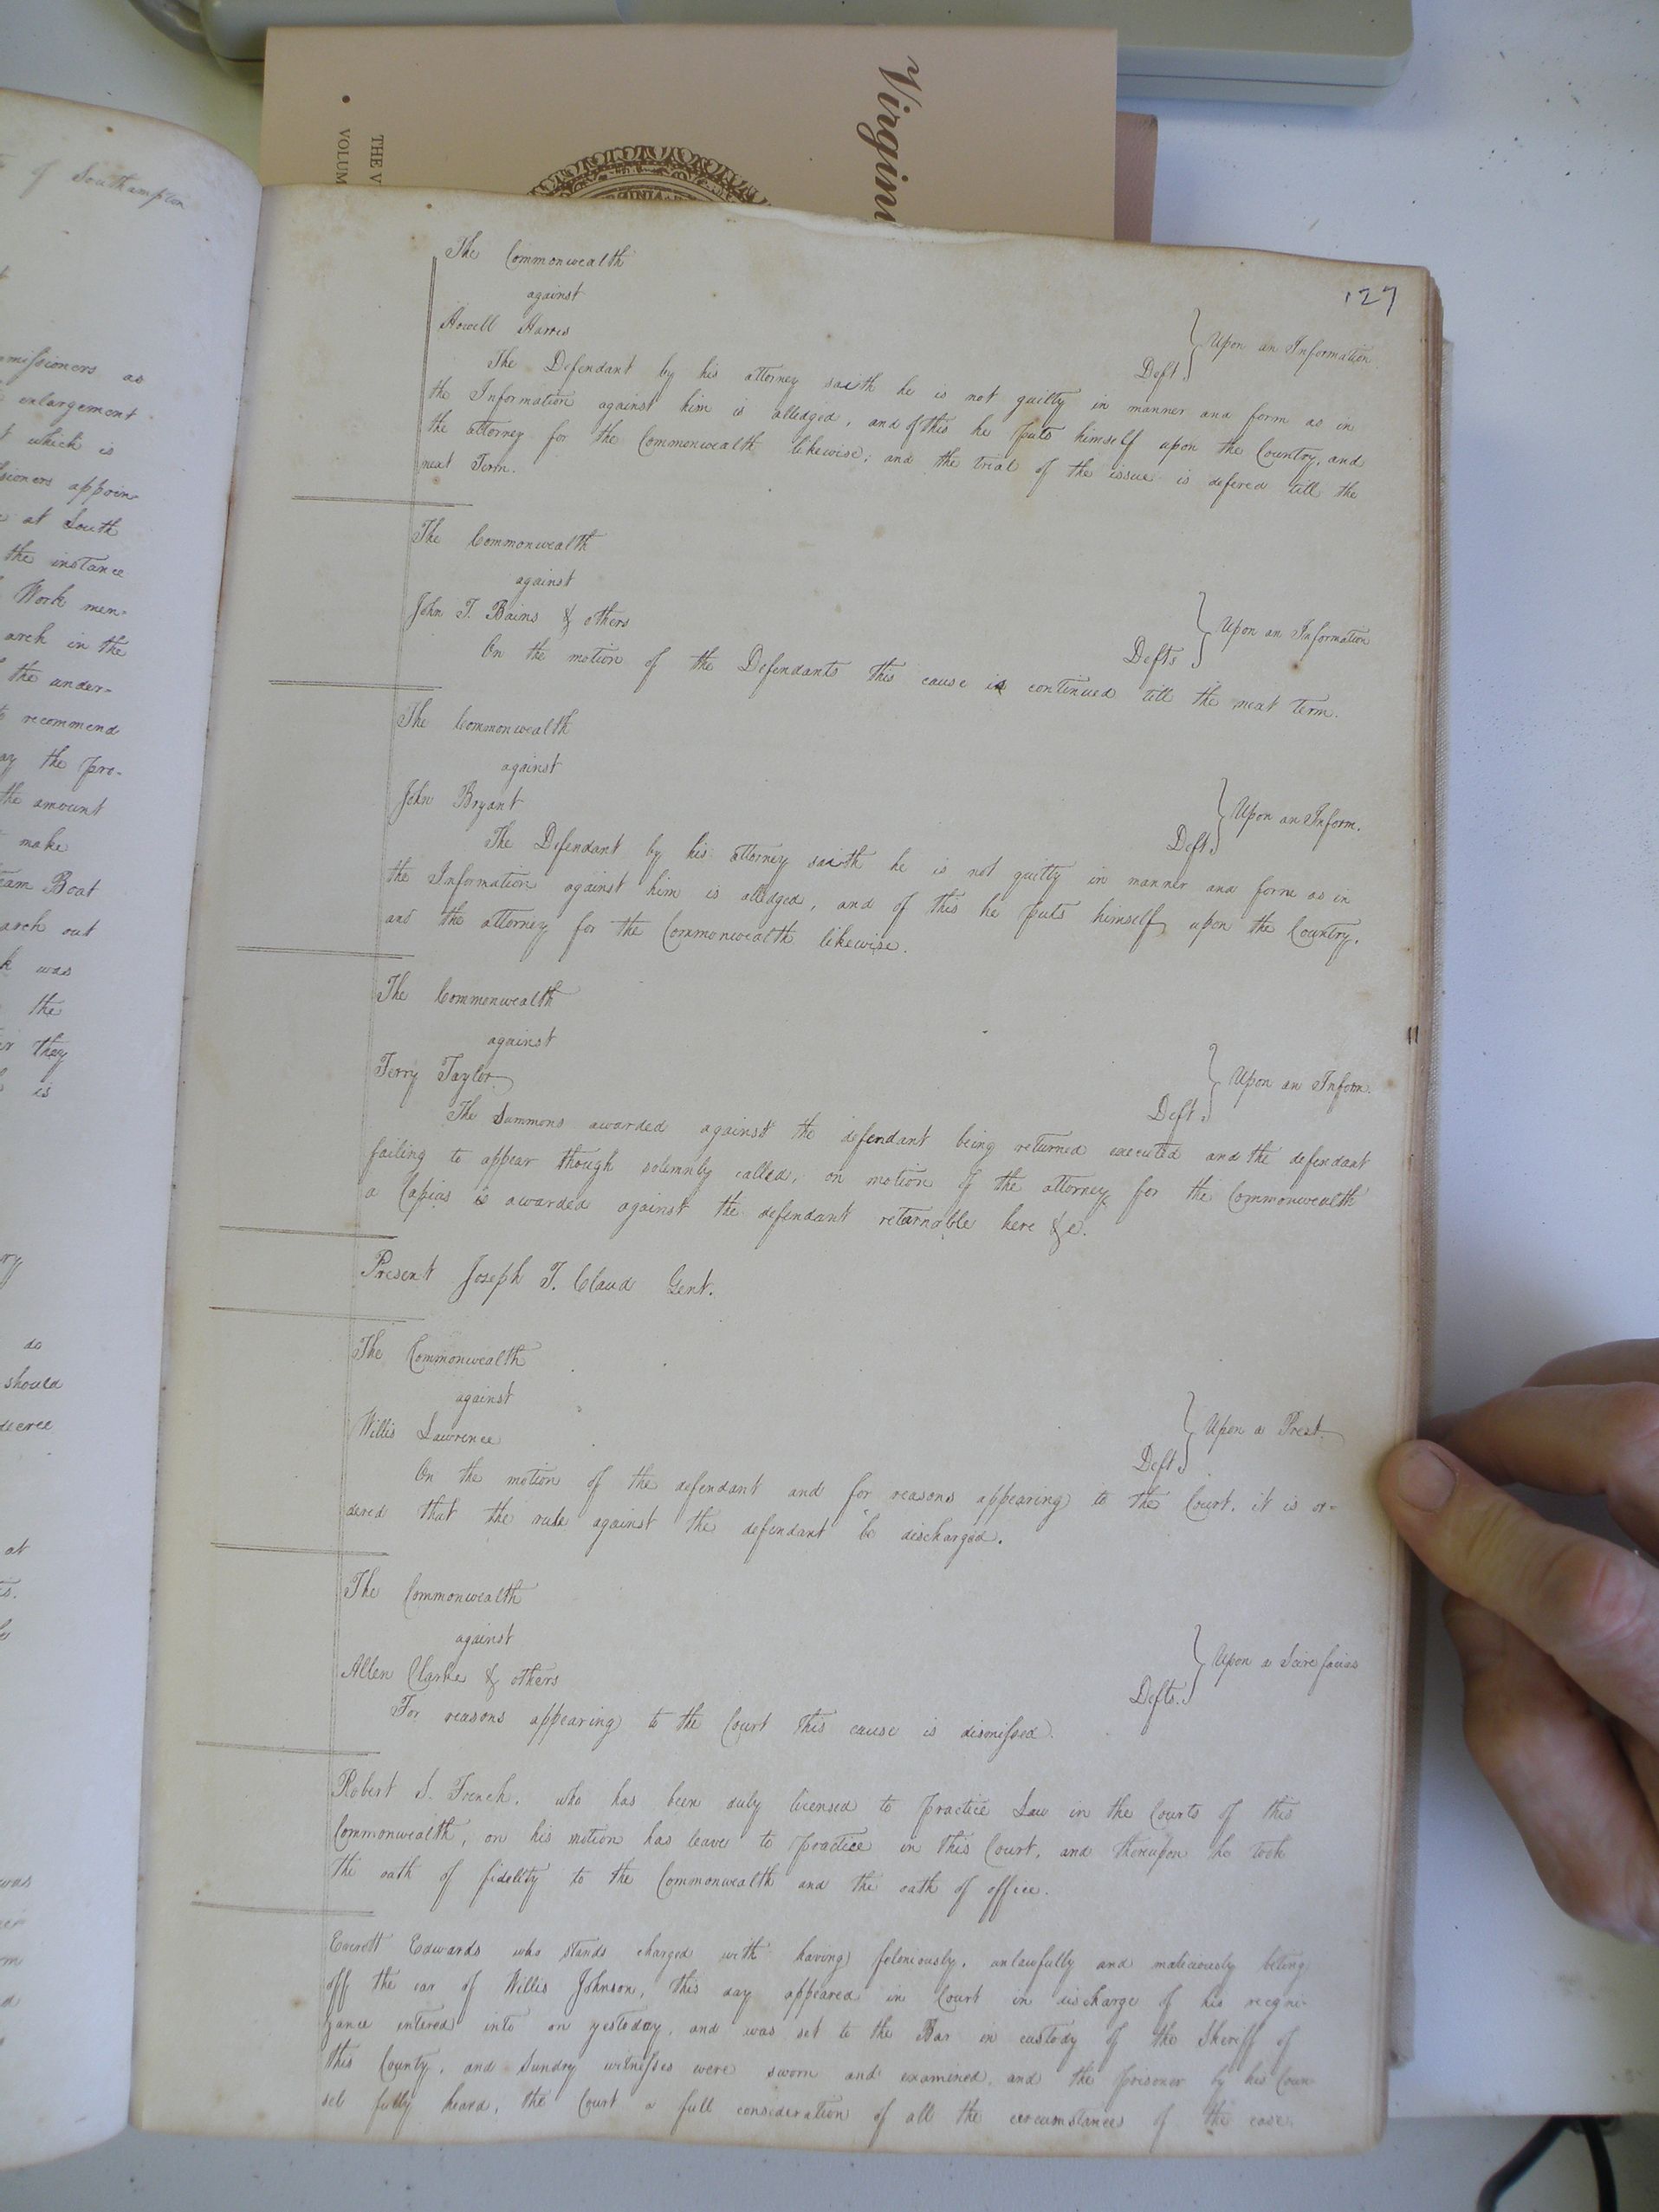 of Southampton
missioners as
enlargement
which is
sioners appoin-
at South
the instance
Work men-
arch in the
the under-
recommend
the pre-
the amount
make
eam Boat
arch out
was
the
they
is
do
should
decree
at
was
Virgin
THE V
VOLUM
127
The Commonwealth
against
Howell Harris Deft. } Upon an Information
The Defendant by his attorney saith he is not guilty in manner and form as in
the Information against him is alledged, and of this he puts himself upon the Country, and
the attorney for the Commonwealth likewise; and the trial of the issue is defered till the
next Term.
The Commonwealth
against
John T. Bains & others Defts } Upon an Information
On the motion of the Defendants this cause is continued till the next term.
The Commonwealth
against
John Bryant Deft. } Upon an Inform.
The Defendant by his attorney saith he is not guilty in manner and form as in
the Information against him is alledged, and of this he puts himself upon the Country,
and the attorney for the Commonwealth likewise.
The Commonwealth
against
Terry Taylor Deft. } Upon an Inform.
The Summons awarded against the defendant being returned executed and the defendant
failing to appear though solemnly called, on motion of the attorney for the Commonwealth
a Capias is awarded against the defendant returnable here &c.
Present Joseph T. Claud Gent.
The Commonwealth
against
Willis Lawrence Deft } Upon a Prest.
On the motion of the defendant and for reasons appearing to the Court, it is or-
dered that the rule against the defendant be discharged.
The Commonwealth
against
Allen Clarke & others Defts. } Upon a Scire facias
For reasons appearing to the Court this cause is dismissed.
Robert S. French, who has been duly licensed to practice Law in the Courts of this
Commonwealth, on his motion has leave to practice in this Court, and thereupon he took
the oath of fidelity to the Commonwealth and the oath of office.
Everett Edwards who stands charged with having feloniously, unlawfully and maliciously biting
off the ear of Willis Johnson, this day appeared in Court in discharge of his recogni-
zance intered into on yestoday, and was set to the Bar in custody of the Sheriff of
this County, and Sundry witnesses were sworn and examined, and the prisoner by his Coun-
sel fully heard, the Court a full consideration of all the circumstances of the case